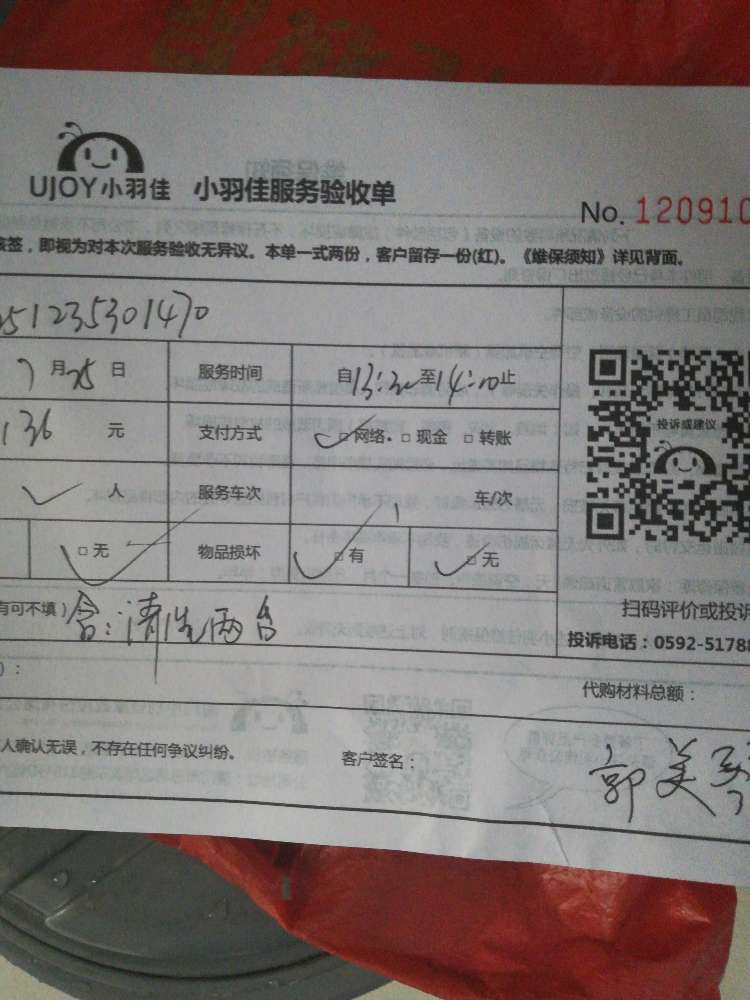 UJOY小羽佳 小羽佳服务验收单
No. 120910
核签，即视为对本次服务验收无异议。本单一式两份，客户留存一份(红)。《维保须知》详见背面。
51235301470
7月25日 服务时间 自13:30至14:10止
136元 支付方式 □网络 □现金 □转账
投诉或建议
人 服务车次 1 车/次
□无 物品损坏 □有 □无
有可不填） 含:清洗两台
扫码评价或投诉
投诉电话：0592-51788
）：
代购材料总额：
人确认无误，不存在任何争议纠纷。 客户签名： 郭美